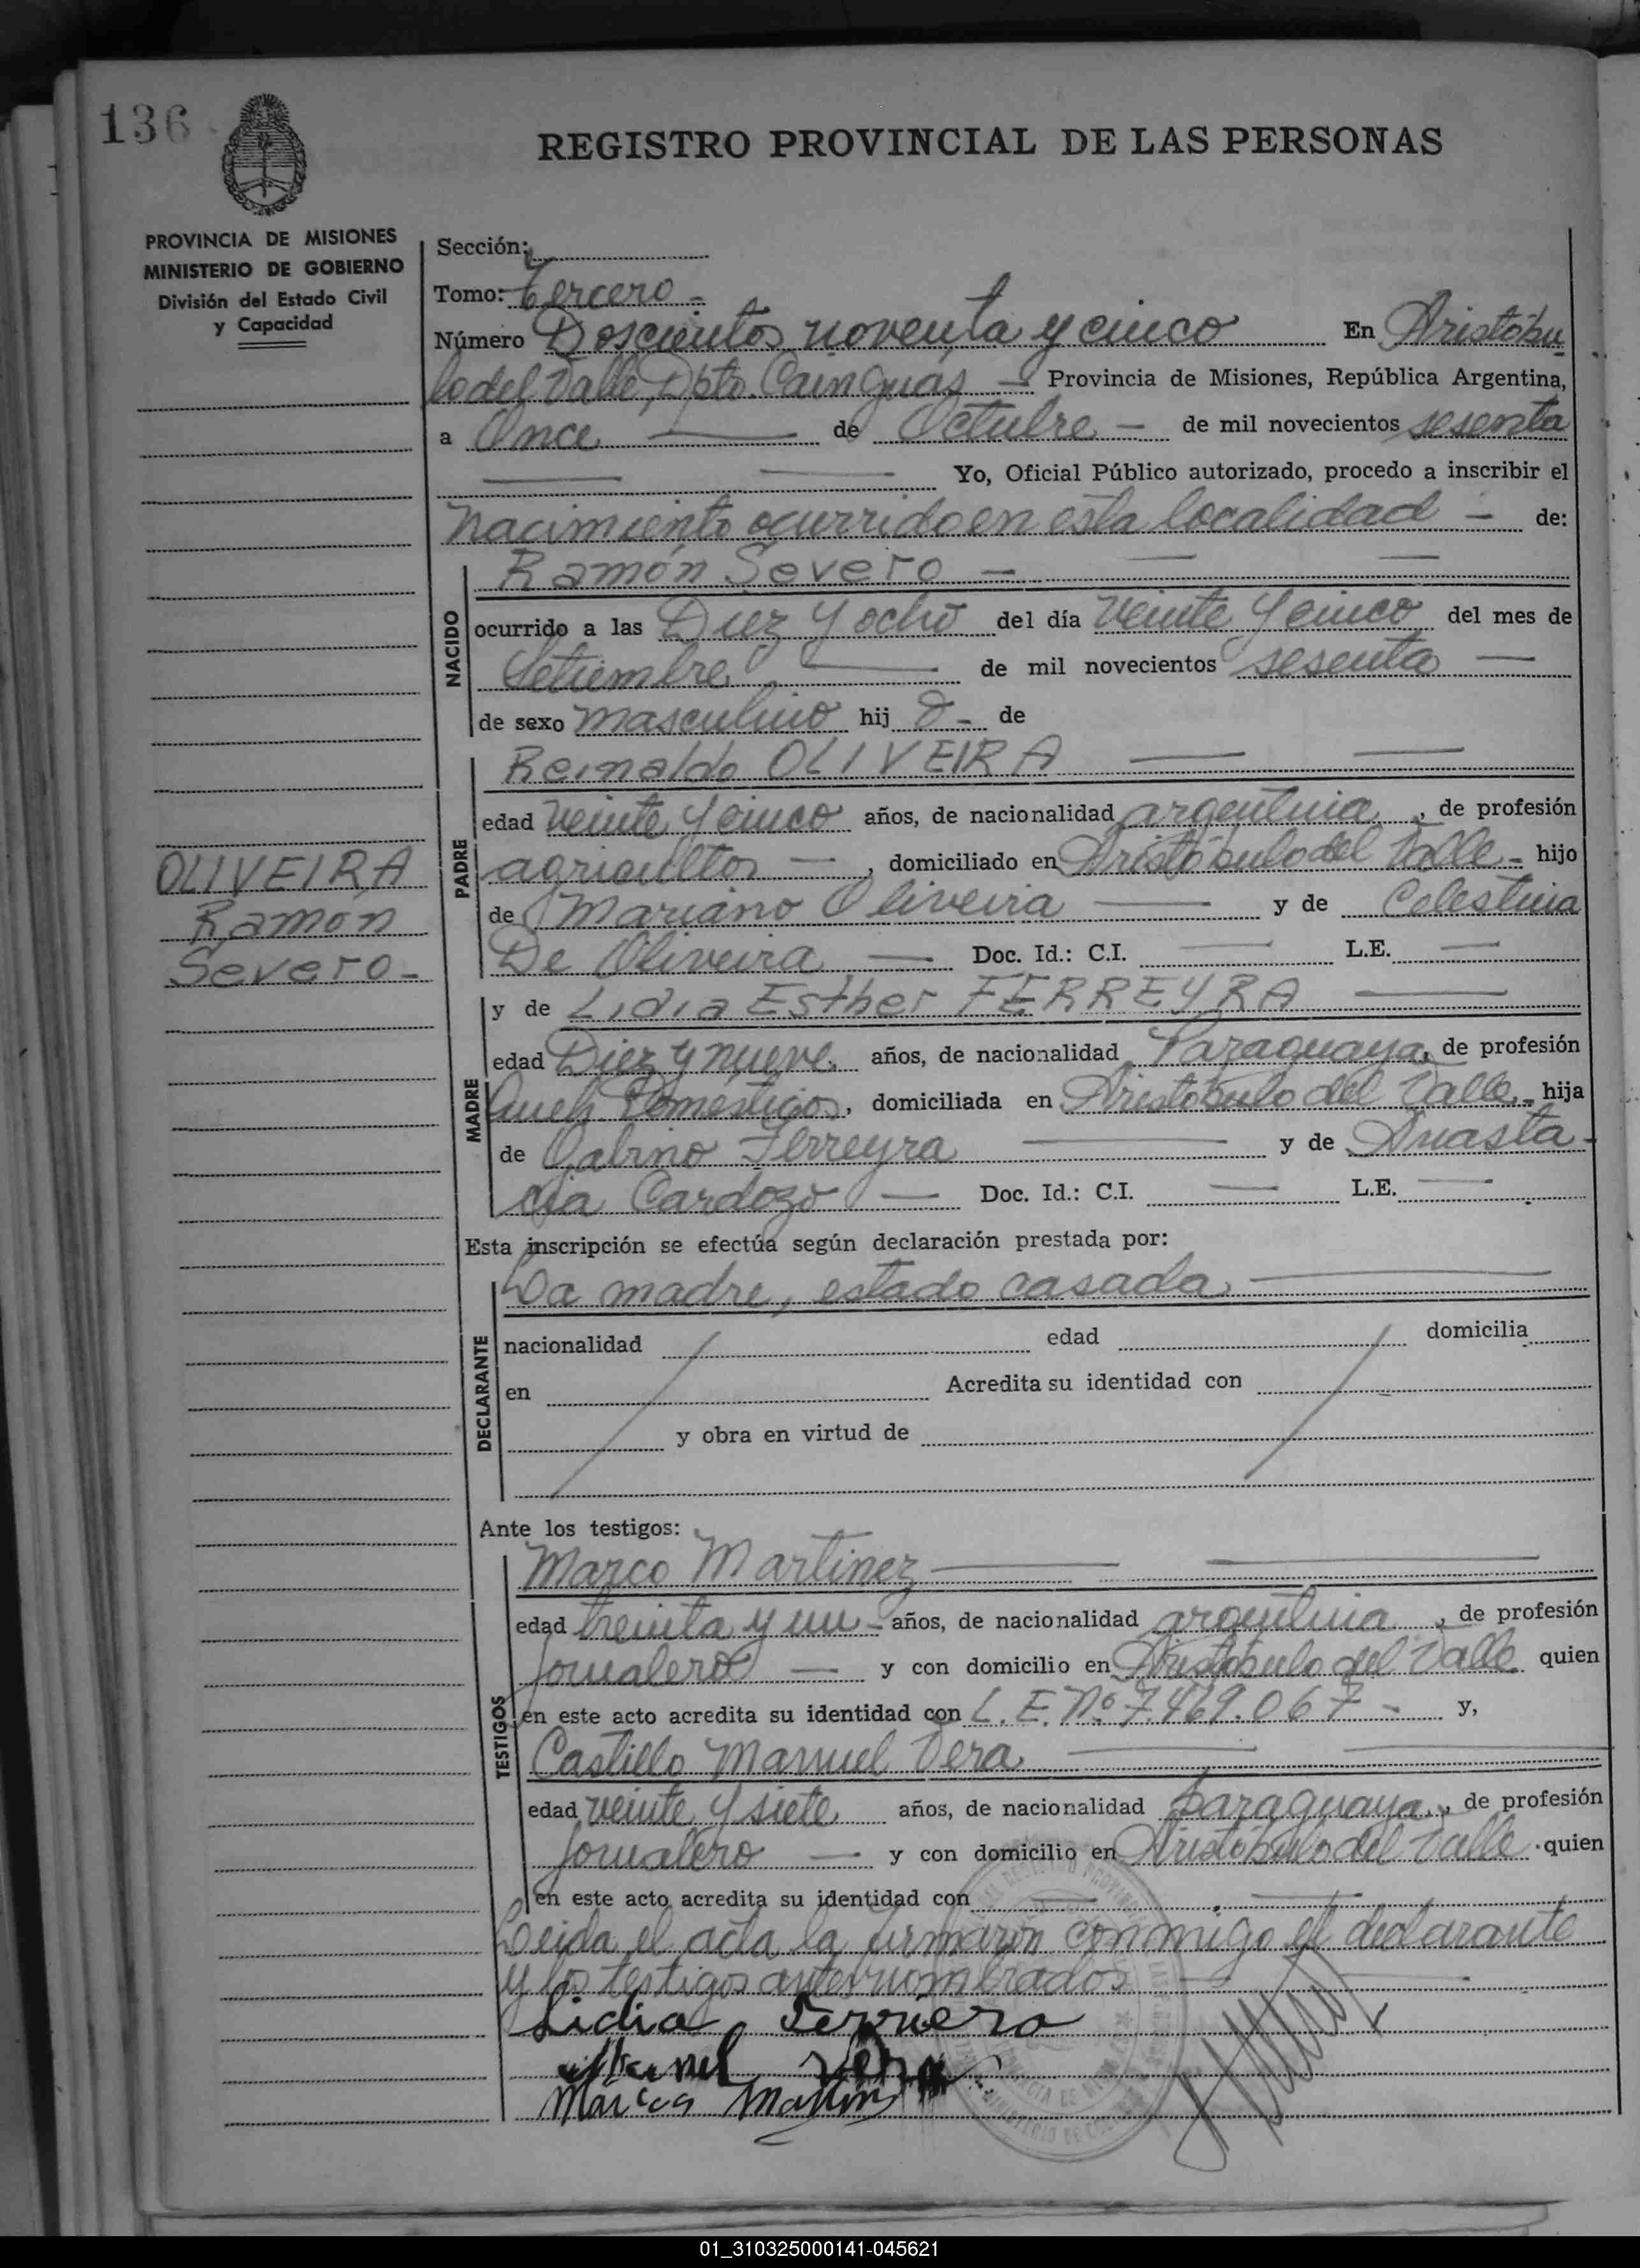 136
REGISTRO PROVINCIAL DE LAS PERSONAS
PROVINCIA DE MISIONES
MINISTERIO DE GOBIERNO
División del Estado Civil
y Capacidad
Sección:
Tomo: Tercero -
Número Doscientos noventa y cinco En Aristóbu
lo del Valle, Dpto. Cainguás - Provincia de Misiones, República Argentina,
a Once de Octubre - de mil novecientos sesenta
Yo, Oficial Público autorizado, procedo a inscribir el
nacimiento ocurrido en esta localidad - de:
NACIDO
Ramón Severo -
ocurrido a las Diez y ocho del día veinte y cinco del mes de
Setiembre de mil novecientos sesenta -
de sexo masculino hij o - de
PADRE
Reinaldo OLIVEIRA
edad veinte y cinco años, de nacionalidad argentina, de profesión
agricultor -, domiciliado en Aristóbulo del Valle - hijo
de Mariano Oliveira y de Celestina
De Oliveira - Doc. Id.: C.I. - L.E. -
OLIVEIRA
Ramón
Severo -
MADRE
y de Lidia Esther FERREYRA
edad Diez y nueve años, de nacionalidad Paraguaya, de profesión
Queh. Domésticos, domiciliada en Aristóbulo del Valle - hija
de Gabino Ferreyra y de Anasta-
cia Cardozo - Doc. Id.: C.I. - L.E. -
Esta inscripción se efectúa según declaración prestada por:
DECLARANTE
La madre, estado casada
nacionalidad edad domicilia
en Acredita su identidad con
y obra en virtud de
Ante los testigos:
TESTIGOS
Marco Martinez
edad treinta y un - años, de nacionalidad argentina, de profesión
Jornalero - y con domicilio en Aristóbulo del Valle quien
en este acto acredita su identidad con L.E. Nº 7.469.067 - y,
Castillo Manuel Vera
edad veinte y siete años, de nacionalidad Paraguaya, de profesión
Jornalero - y con domicilio en Aristóbulo del Valle quien
en este acto acredita su identidad con
Leida el acta la firmaron conmigo el declarante
y los testigos antes nombrados
Lidia Ferriera
Manuel Vera
Marcos
01_310325000141-045621